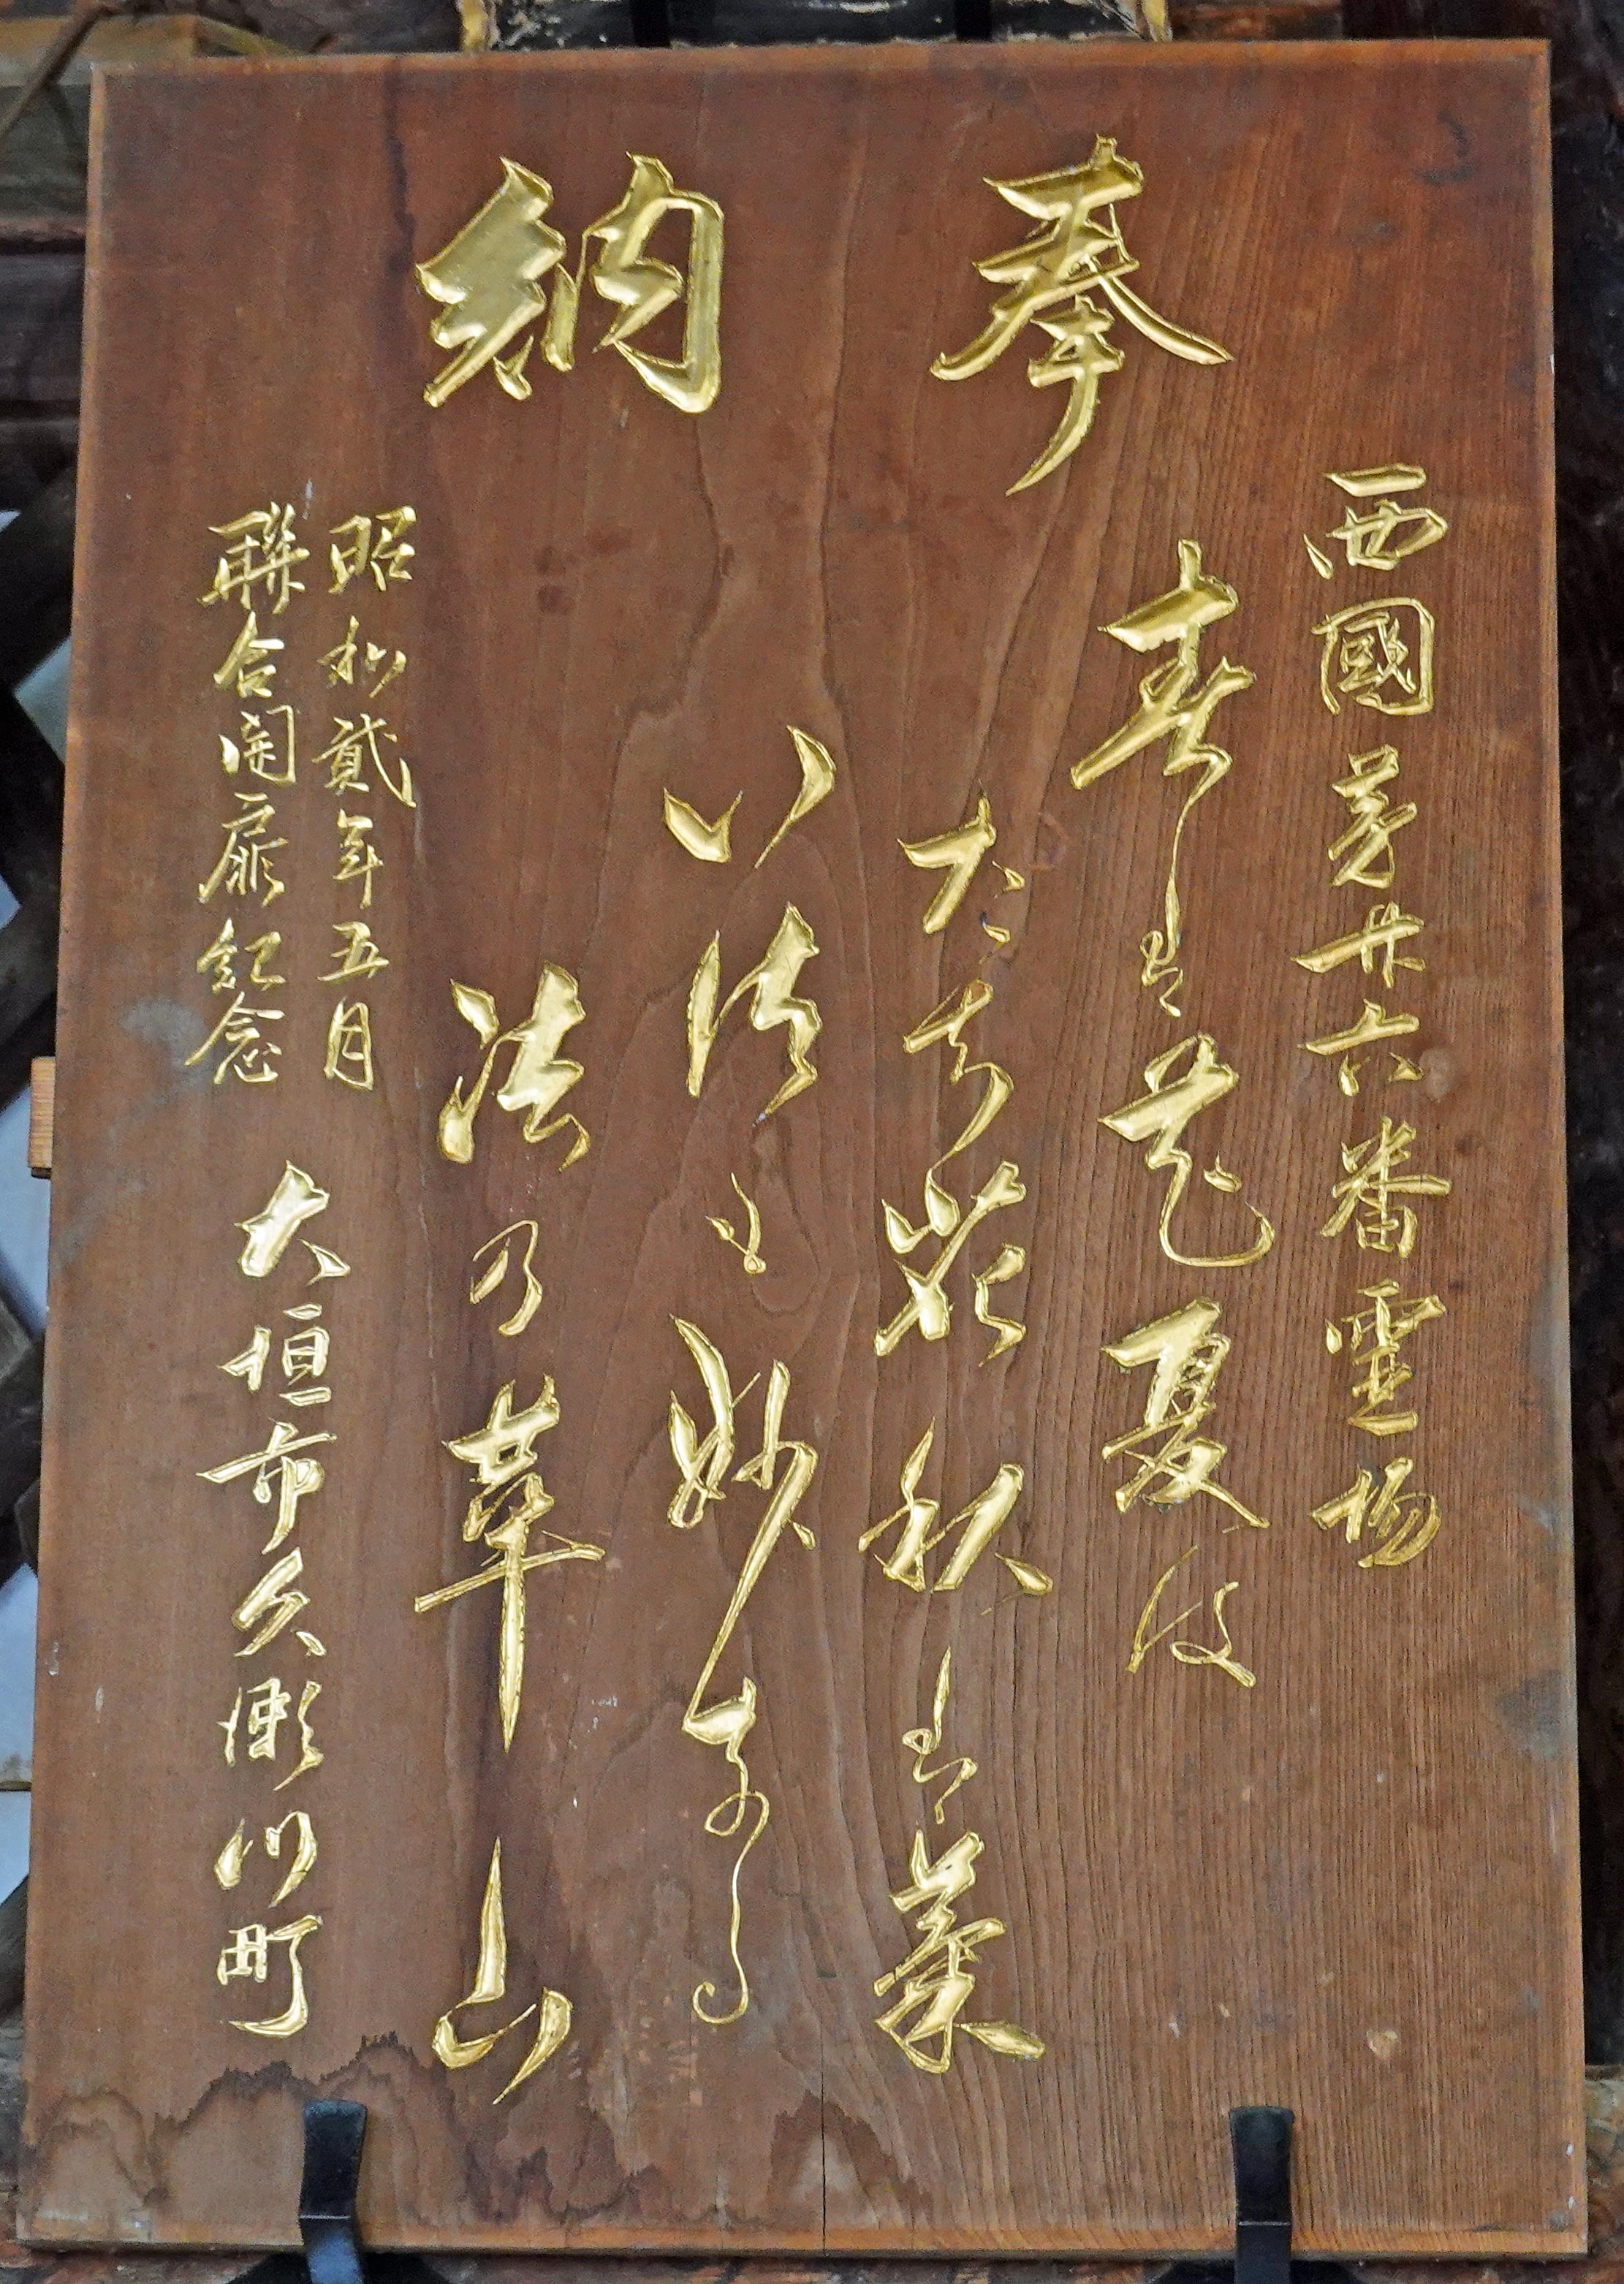 奉納
西國第廿六番霊場
春は花夏は
たち花秋は菊
いつも妙なる
法乃華山
昭和貳年五月
聯合開扉紀念
大垣市久瀬川町